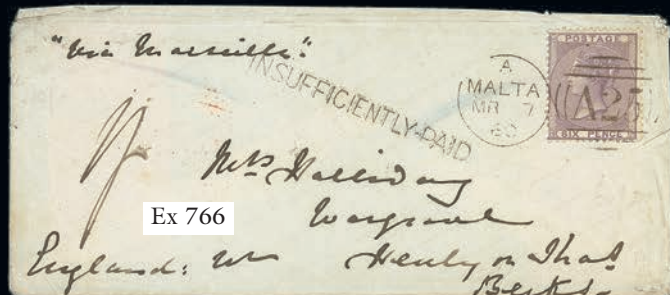 "Via Marseille".
INSUFFICIENTLY PAID
A
MALTA
MR 7
60
POSTAGE
A25
SIX PENCE
Mrs Halliday
Wargrave
Ex 766
Henley on Thas
England:
Berks